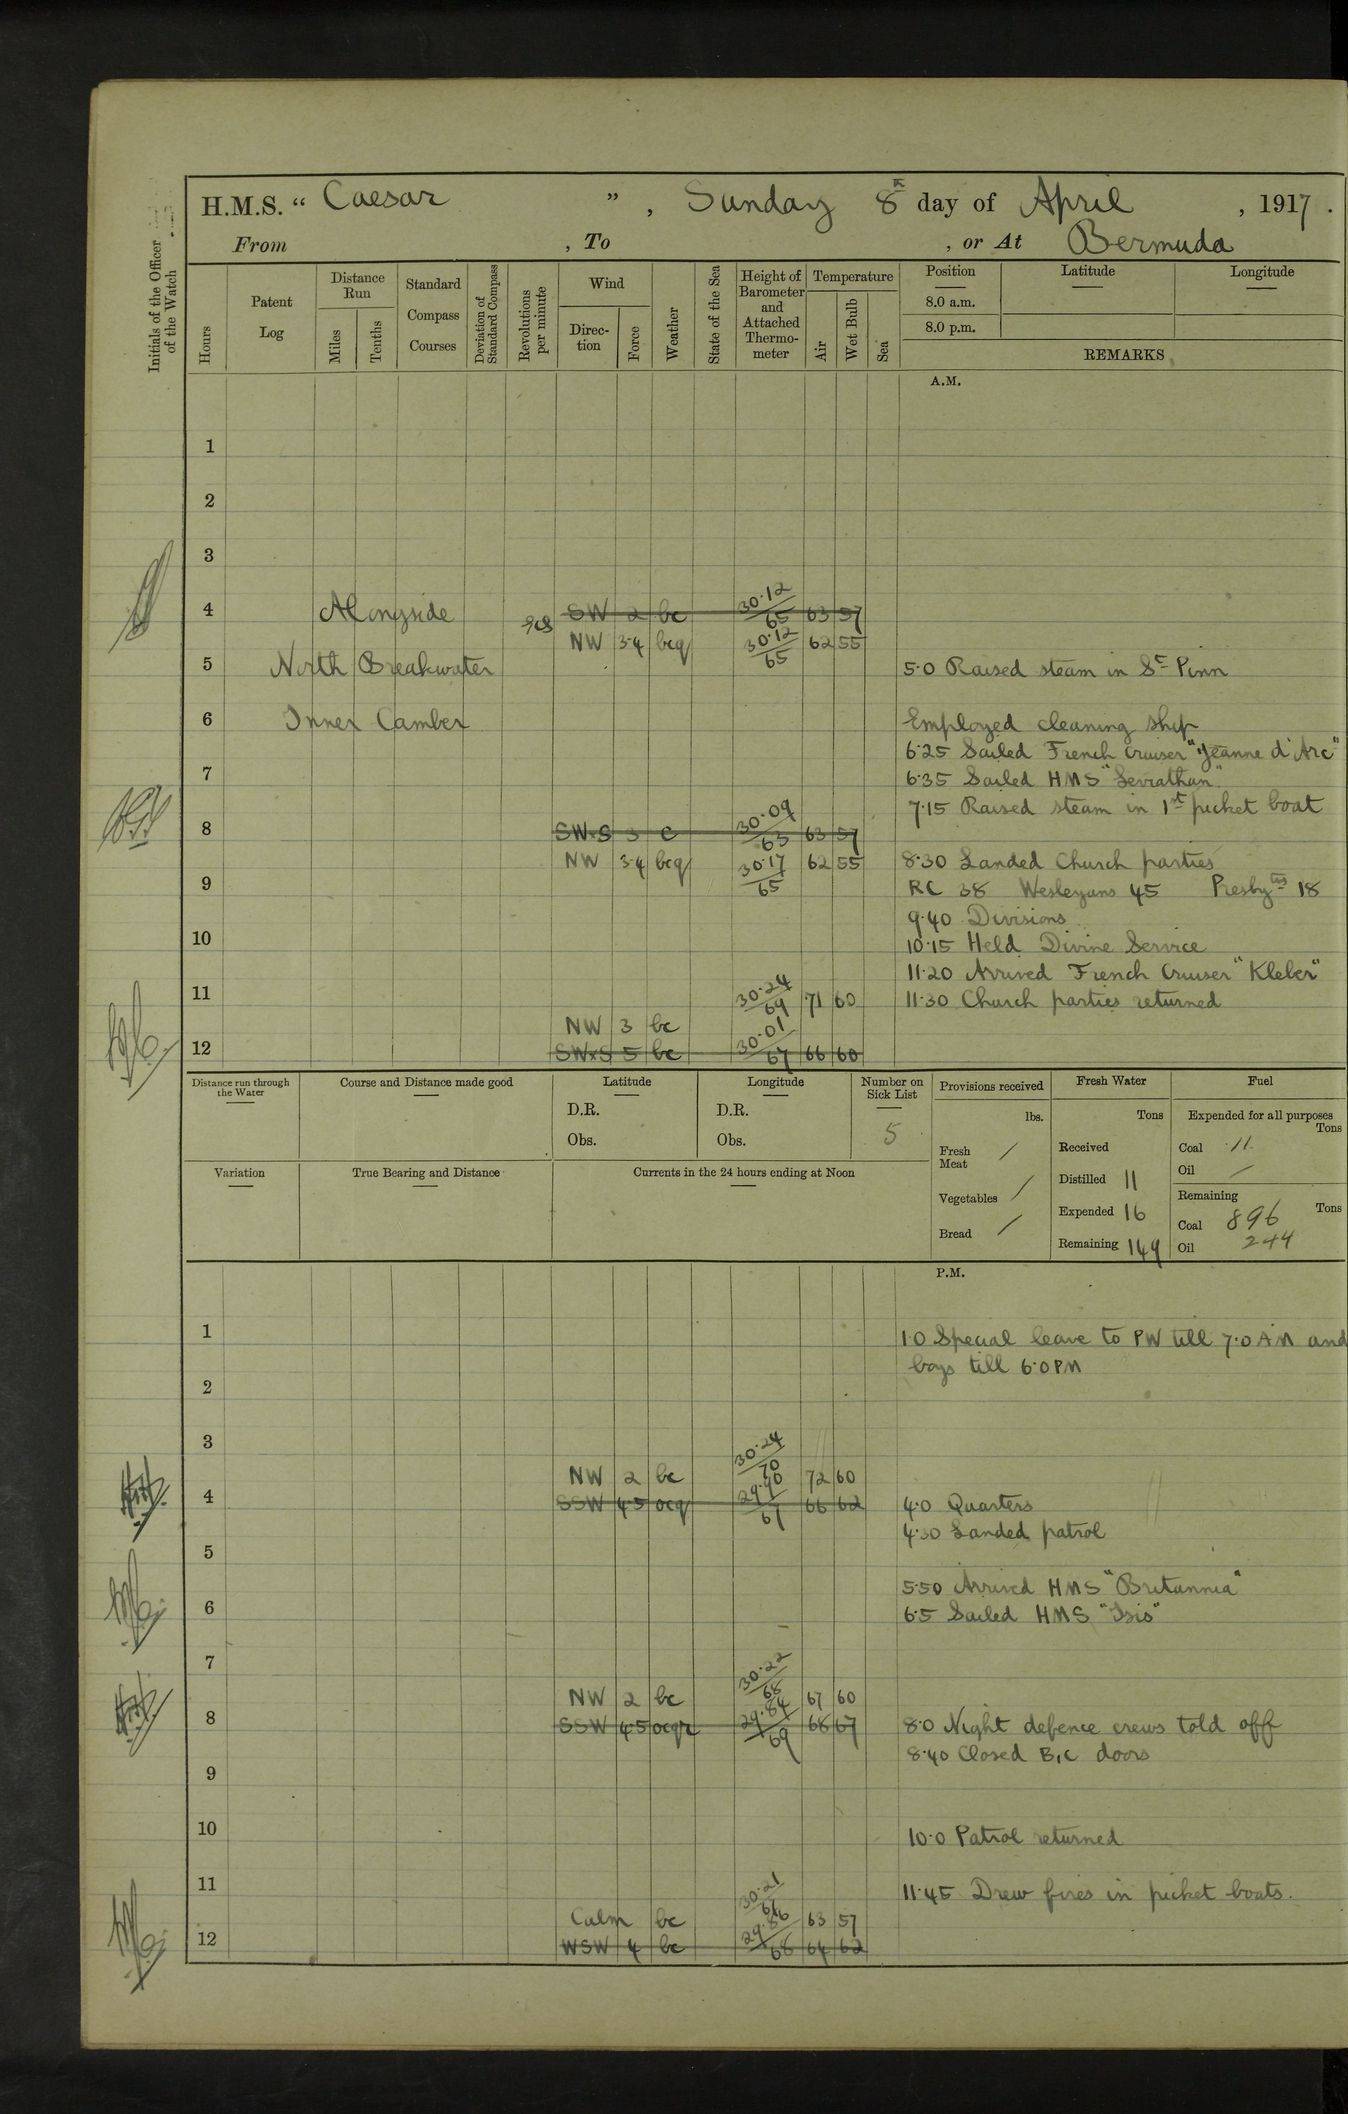 H.M.S. “ Caesar ” , Sunday 8th day of April , 1917 .
From , To , or At Bermuda
Initials of the Officer of the Watch
Hours
Patent Log
Distance Run
Miles
Tenths
Standard Compass Courses
Deviation of Standard Compass
Revolutions per minute
Wind
Direc-tion
Force
Weather
State of the Sea
Height of Barometer and Attached Thermo-meter
Temperature
Air
Wet Bulb
Sea
Position
8.0 a.m.
8.0 p.m.
Latitude
Longitude
REMARKS
A.M.
1
2
3
4 Alongside SW 2 bc 30.12 65 63 57
NW 3.4 bcq 30.12 65 62 55
5 North Breakwater 5.0 Raised steam in St Pinn
6 Inner Camber Employed cleaning ship
6.25 Sailed French Cruiser "Jeanne d'Arc"
7 6.35 Sailed HMS "Leviathan"
7.15 Raised steam in 1st picket boat
8 SWxS 3 c 30.09 63 63 57
NW 3.4 bcq 30.17 65 62 55 8.30 Landed Church parties
9 RC 38 Wesleyans 45 Presbytns 18
9.40 Divisions
10 10.15 Held Divine Service
11.20 Arrived French Cruiser "Kleber"
11 30.24 69 71 60 11.30 Church parties returned
NW 3 bc
12 SWxS 5 bc 30.01 67 66 60
Distance run through the Water
Course and Distance made good
Latitude
D.R.
Obs.
Longitude
D.R.
Obs.
Number on Sick List
5
Provisions received
lbs.
Fresh Meat /
Vegetables /
Bread /
Fresh Water
Tons
Received
Distilled 11
Expended 16
Remaining 149
Fuel
Expended for all purposes
Tons
Coal 11
Oil /
Remaining
Tons
Coal 896
Oil 244
Variation
True Bearing and Distance
Currents in the 24 hours ending at Noon
P.M.
1 1.0 Special leave to PW till 7.0 AM and
boys till 6.0 PM
2
3
NW 2 bc 30.24 70 72 60
4 SSW 4.5 ocq 29.90 67 66 62 4.0 Quarters
4.30 Landed patrol
5
5.50 Arrived HMS "Britannia"
6 6.5 Sailed HMS "Isis"
7
NW 2 bc 30.22 68 67 60
8 SSW 4.5 ocqr 29.84 69 68 67 8.0 Night defence crews told off
8.40 Closed B,C doors
9
10 10.0 Patrol returned
11 11.45 Drew fires in picket boats.
Calm bc 30.21 66 63 57
12 WSW 4 bc 29.86 68 64 62